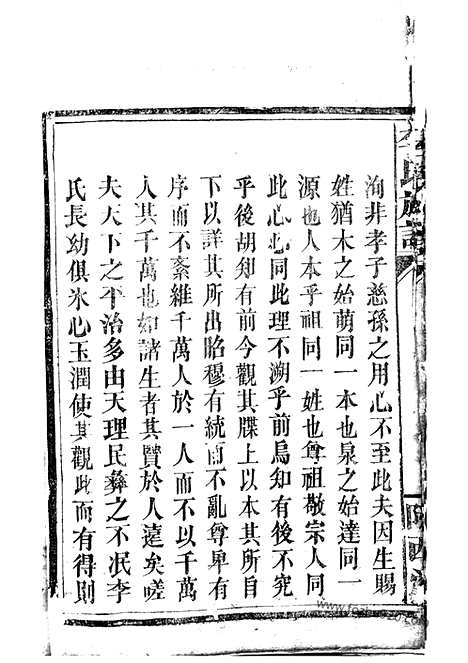 李氏族譜
洵非孝子慈孫之用心不至此夫因生賜
姓猶木之始萌同一本也泉之始達同一
源也人本乎祖同一姓也尊祖敬宗人同
此心心同此理不溯乎前烏知有後不究
乎後胡知有前今觀其牒上以本其所自
下以詳其所出昭穆有統而不亂尊卑有
序而不紊維千萬人於一人而不以千萬
人其千萬也如諸生者其賢於人遠矣嗟
夫天下之平治多由天理民彝之不泯李
氏長幼俱氷心玉潤使其觀此而有得則